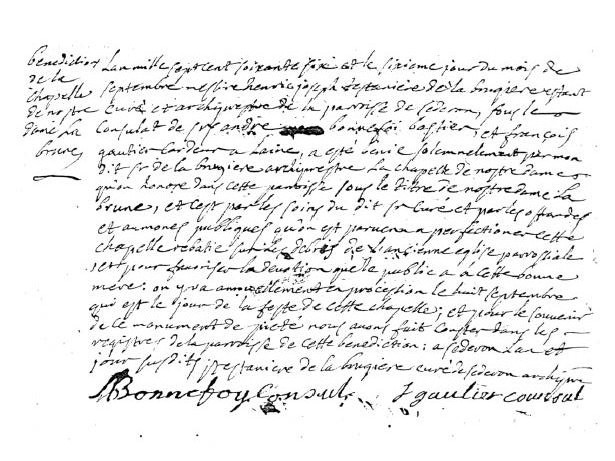 benediction
de la
chapelle
de nostre
dame la
brune
Lan mille sept cent soixante six et le sixieme jour du mois de
septembre messire henric joseph testaniere de la brugiere estant
curé et archiprestre de la parrisse de sederon, sous le
consulat de sr andre bonnefoi bastier, et françois
gautier cardeur a laine, a esté benie solemnelement par mon
dit sr de la brugiere archiprestre la chapelle de nostre dame
qu'on honore dans cette parroisse sous le titre de nostre dame la
brune, et c'est par les soins du dit sr curé et par les offrandes
et aumones publiques qu'on est parvenu a perfectioner cette
chapelle rebatie sur les debris de l'ancienne eglise parrossiale
et pour favoriser la devotion que le public a a cette bonne
mere: on y va annuellement en procession le huit septembre
qui est le jour de la feste de cette chapelle; et pour le souvenir
de ce monument de pieté nous avons fait conster dans les
registres de la parroisse de cette benediction: a sederon l'an et
jour susdits testaniere de la brugiere curé de sederon archipr
Bonnefoy Consul gautier consul